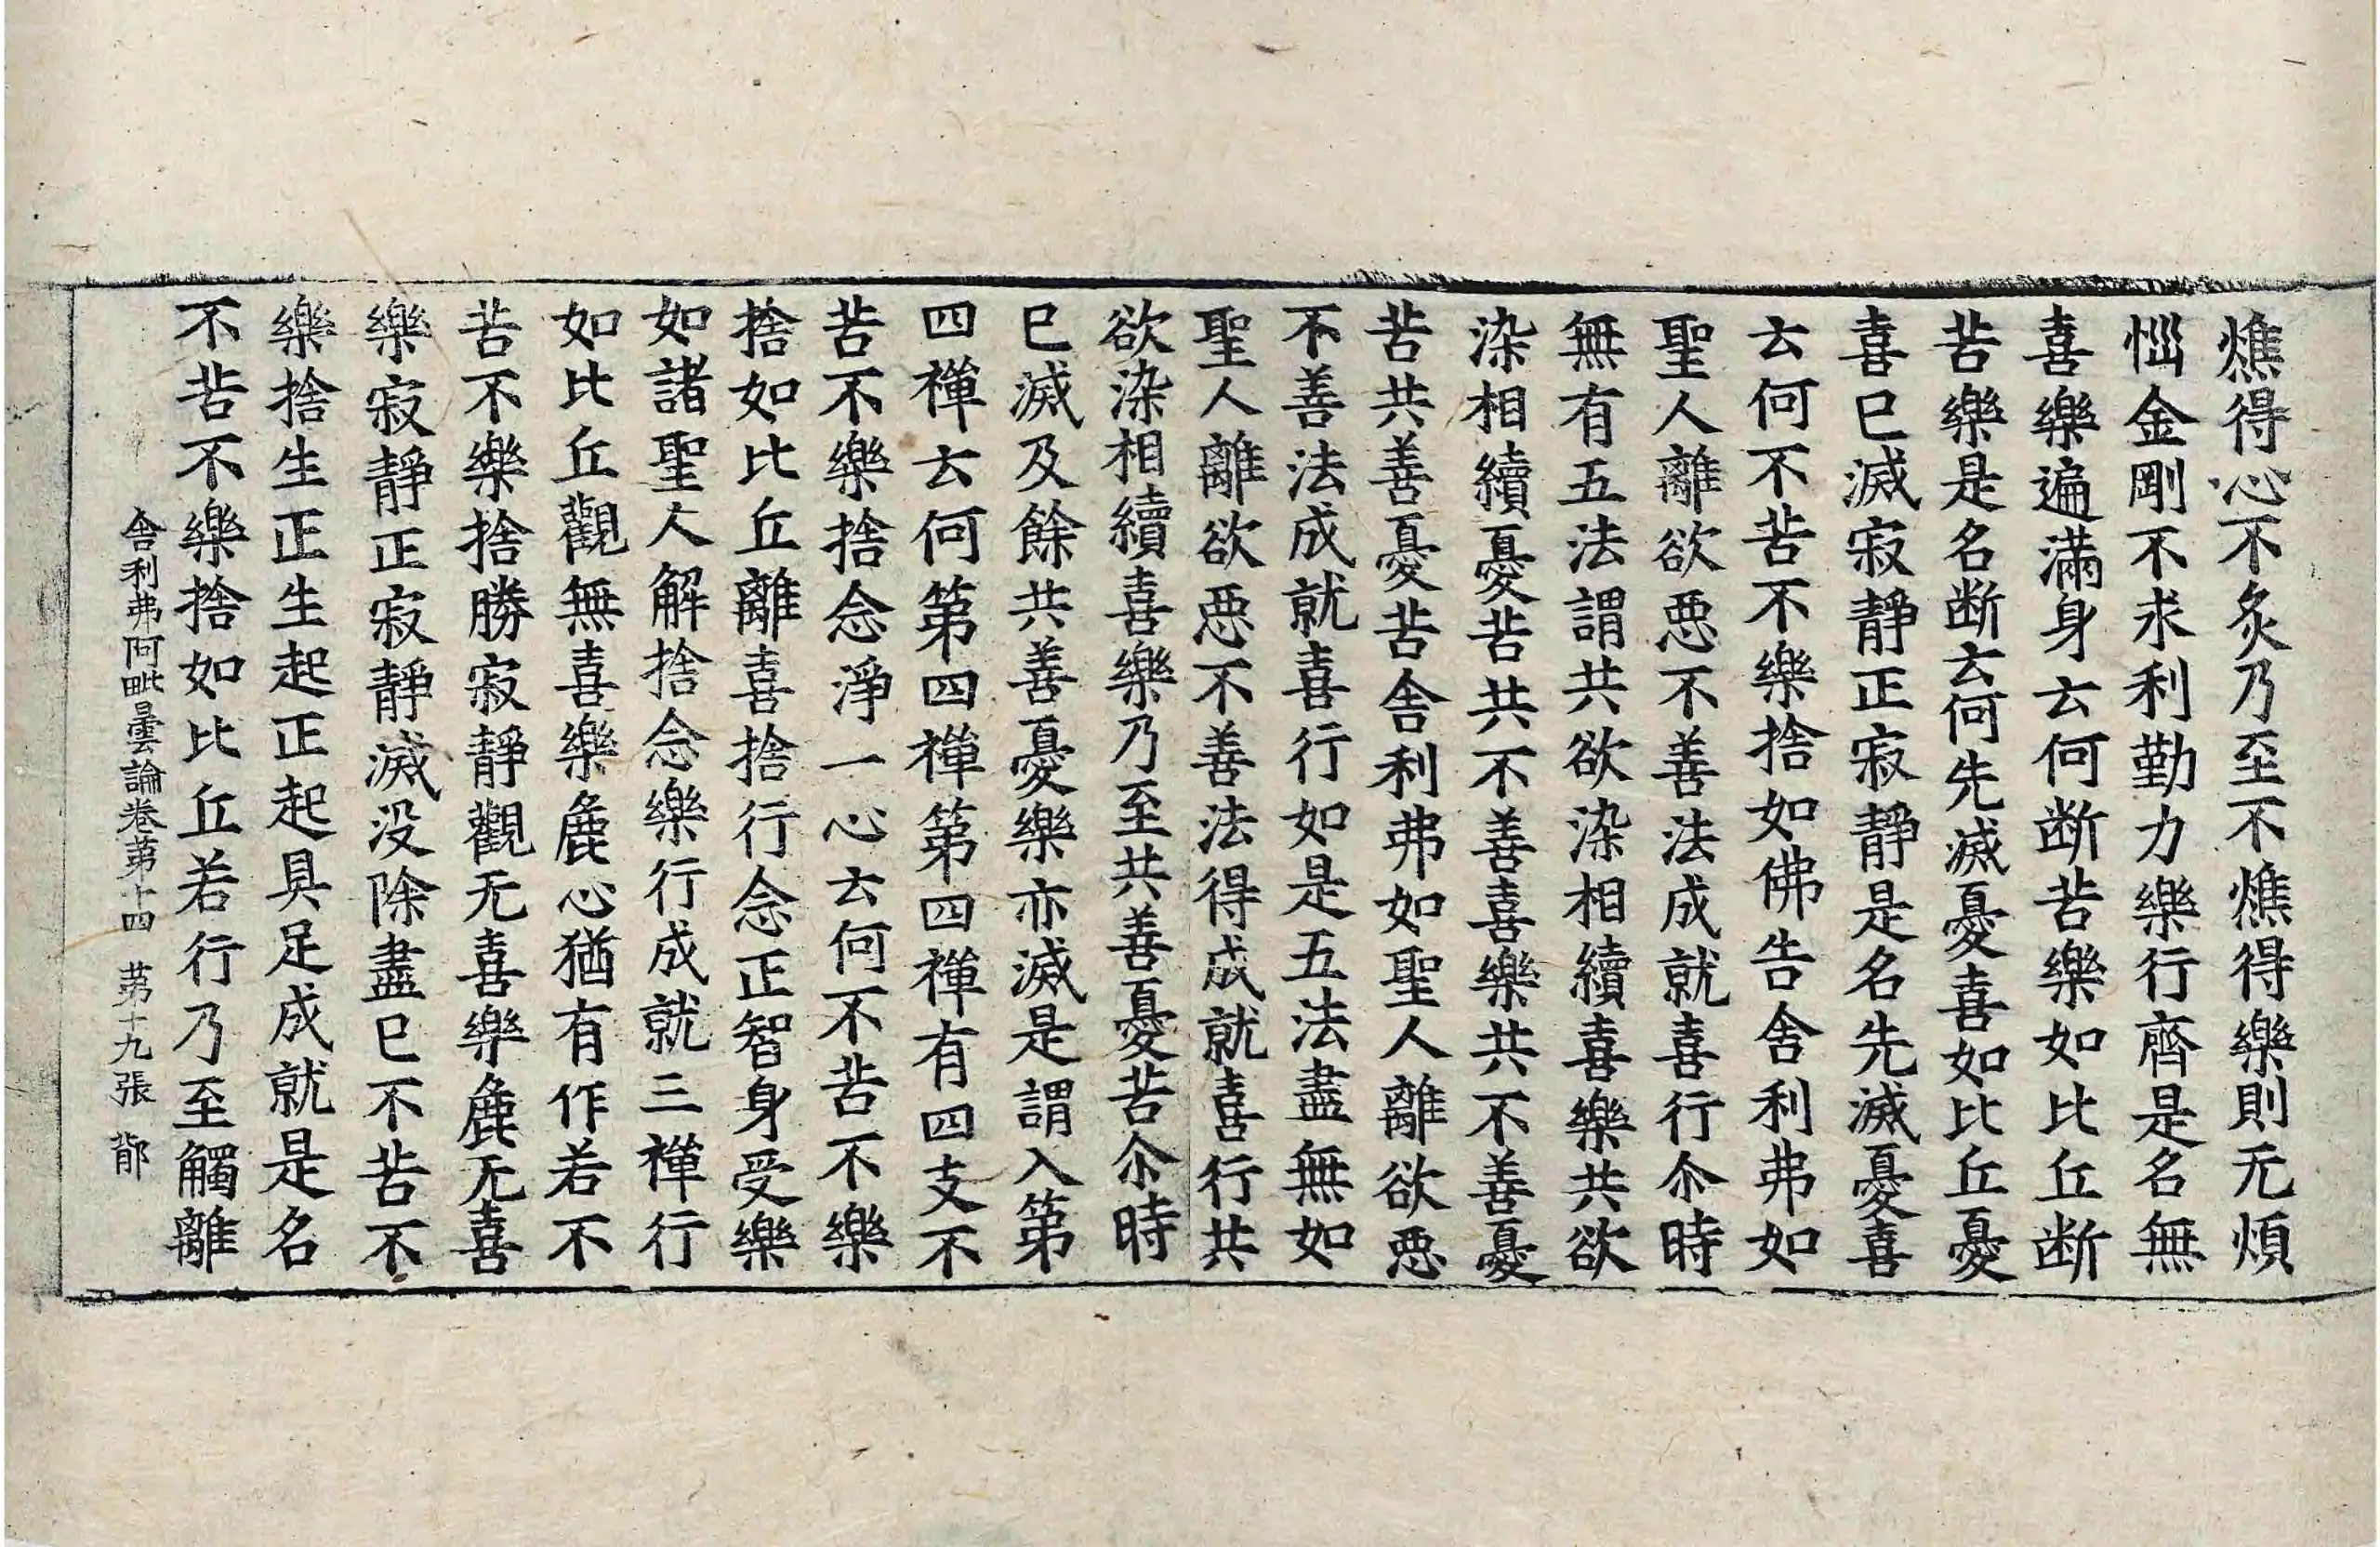 燋得心不炙乃至不燋得樂則无煩
惱金剛不求利勤力樂行齊是名無
喜樂遍滿身云何断苦樂如比丘断
苦樂是名断云何先滅憂喜如比丘憂
喜已滅寂靜正寂靜是名先滅憂喜
云何不苦不樂捨如佛告舍利弗如
聖人離欲惡不善法成就喜行尒時
無有五法謂共欲染相續喜樂共欲
染相續憂苦共不善喜樂共不善憂
苦共善憂苦舍利弗如聖人離欲惡
不善法成就喜行如是五法盡無如
聖人離欲惡不善法得成就喜行共
欲染相續喜樂乃至共善憂苦尒時
已滅及餘共善憂樂亦滅是謂入第
四禪云何第四禪第四禪有四支不
苦不樂捨念淨一心云何不苦不樂
捨如比丘離喜捨行念正智身受樂
如諸聖人解捨念樂行成就三禪行
如比丘觀無喜樂麁心猶有作若不
苦不樂捨勝寂靜觀无喜樂麁无喜
樂寂靜正寂靜滅没除盡已不苦不
樂捨生正生起正起具足成就是名
不苦不樂捨如比丘若行乃至觸離
舍利弗阿毗曇論卷第十四 第十九張